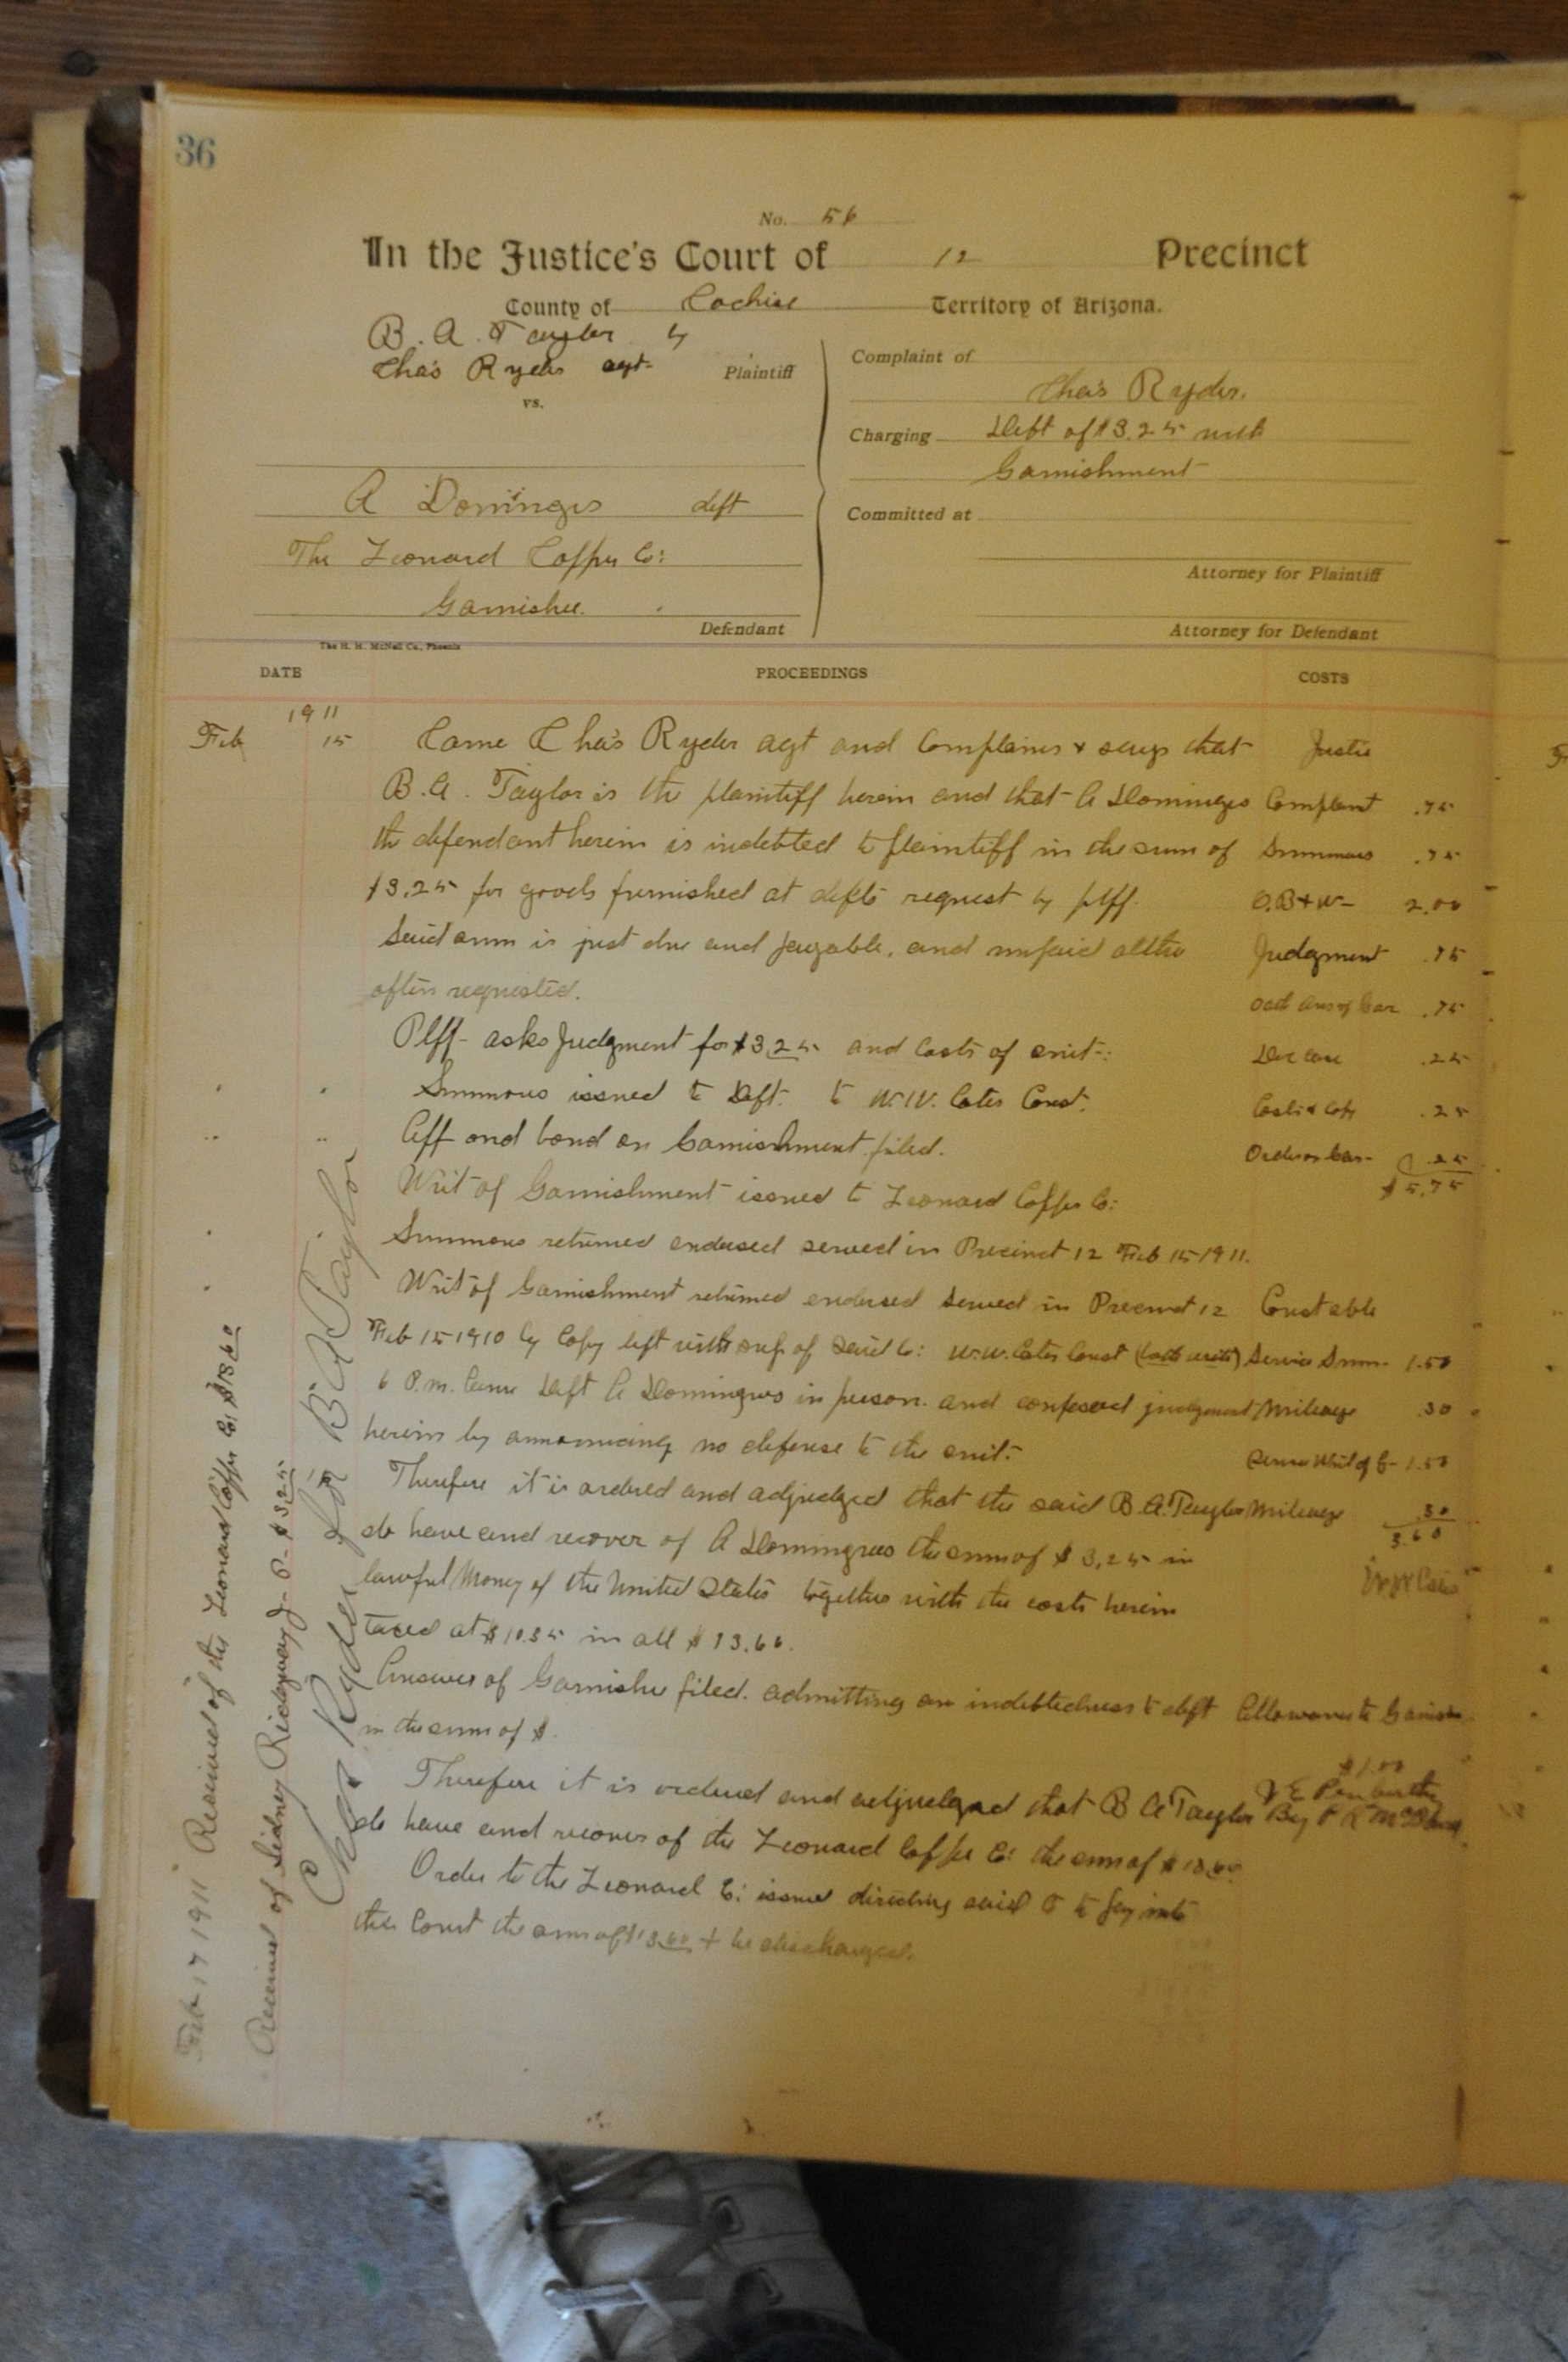 36
No. 56
In the Justice's Court of 12 Precinct
County of Cochise Territory of Arizona.
B. A. Taylor by
Chas Ryder agt- Plaintiff
vs.
A Domingos deft
The Leonard Copper Co:
Garnishee.
Defendant
Complaint of
Chas Ryder.
Charging Debt of $3.25 with
Garnishment
Committed at
Attorney for Plaintiff
Attorney for Defendant
The H. H. McNeil Co., Phoenix
DATE PROCEEDINGS COSTS
1911
Feb 15 Came Chas Ryder agt and Complains & says that Justice
B. A. Taylor is the plaintiff herein and that A Domingos Complaint .75
the defendant herein is indebted to plaintiff in the sum of Summons .75
$3.25 for goods furnished at defts request by plff. O.B+W- 2.00
Said sum is just due and payable, and unpaid altho Judgment .75
often requested. .75
Plff- asks Judgment for $3.25 and Costs of suit-: .25
Summons issued to Deft. to W.W. Cates Const. .25
Aff and bond on Garnishment filed. Order on Gar- .25
$5.75
Writ of Garnishment issued to Leonard Copper Co:
Summons returned endorsed served in Precinct 12 Feb 15 1911.
Writ of Garnishment returned endorsed served in Precinct 12 Constable
Feb 15 1910 by Copy left with sup. of said Co: W.W. Cates Const (both writs) Service Summ- 1.50
6 P.m. Came Deft A Domingos in person. and confessed judgment Mileage .30
herein by announcing no defense to the suit: Service Writ of G- 1.50
Therefore it is ordered and adjudged that the said B.A. Taylor Mileage .30
3.60
do have and recover of A Domingos the sum of $3.25 in
lawful Money of the United States together with the costs herein W W Cates
taxed at $10.35 in all $13.60.
Answer of Garnishee filed. admitting an indebtedness to deft Allowance to Garnish
in the sum of $.
$1.00
Therefore it is ordered and adjudged that B A Taylor
do have and recover of the Leonard Copper Co: the sum of $13.60
Order to the Leonard Co: issued directing said Co to pay into
this Court the sum of $13.60 + be discharged.
Feb 17 1911 Received of the Leonard Copper Co: $13.60
Received of Sidney Ridgway J- P- $3.25
Chas Ryder for B A Taylor